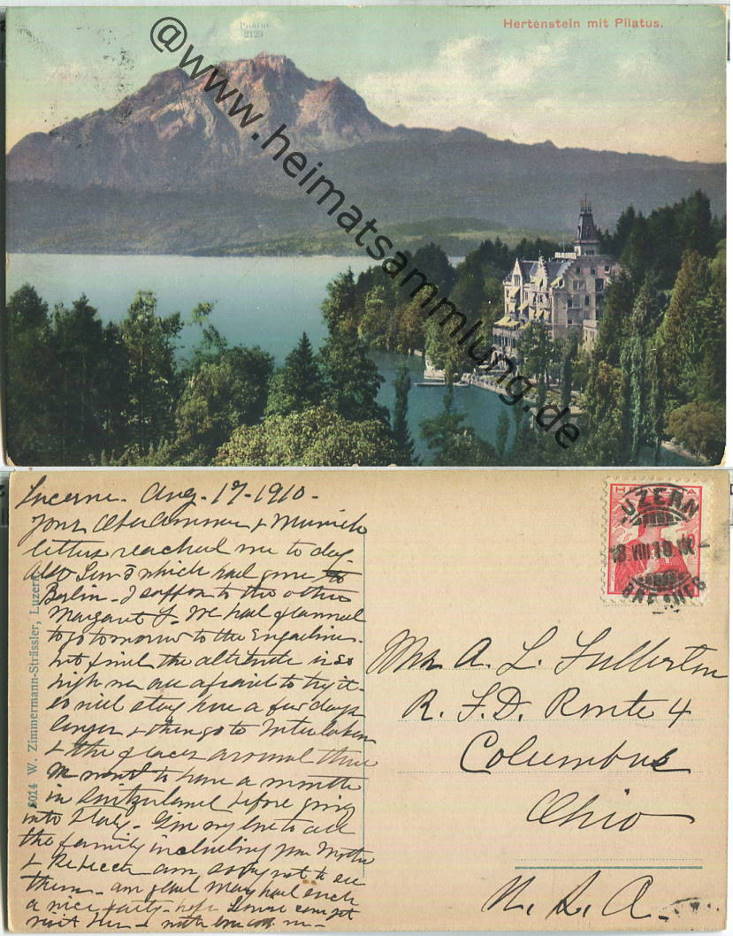 Pilatus
2129
Hertenstein mit Pilatus.
@www.heimatsammlung.de
Lucerne. Aug. 17-1910-
Your Oberammergau & Munich
letters reached me to day
also which had gone to
Berlin. I to the other
Margaret F. We had planned
to go tomorrow to the Engadine.
but find the altitude is so
high we are afraid to try it.
so will stay here a few days
longer & then go to Interlaken
& the places around there
We want to have a month
in Switzerland before going
into Italy. Give my love to all
the family including your Mother
& Rebecca am sorry not to see
them. am glad Mary had such
a nice party. hope Louise can get
visit
5014 W. Zimmermann-Strässler, Luzern.
HELVETIA
LUZERN
18 VIII 10
Mrs A. L. Fullerton
R. F. D. Route 4
Columbus
Ohio
U. S. A.